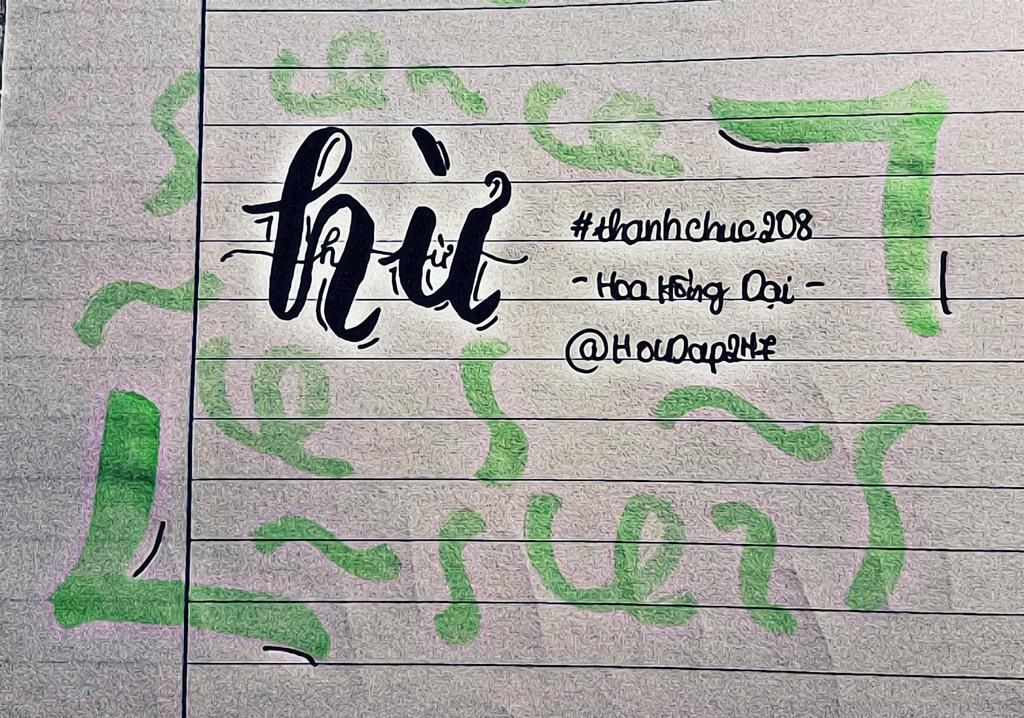 hừ
h ừ
#thanhchuc208
- Hoa Hồng Dại -
@HoiDap247